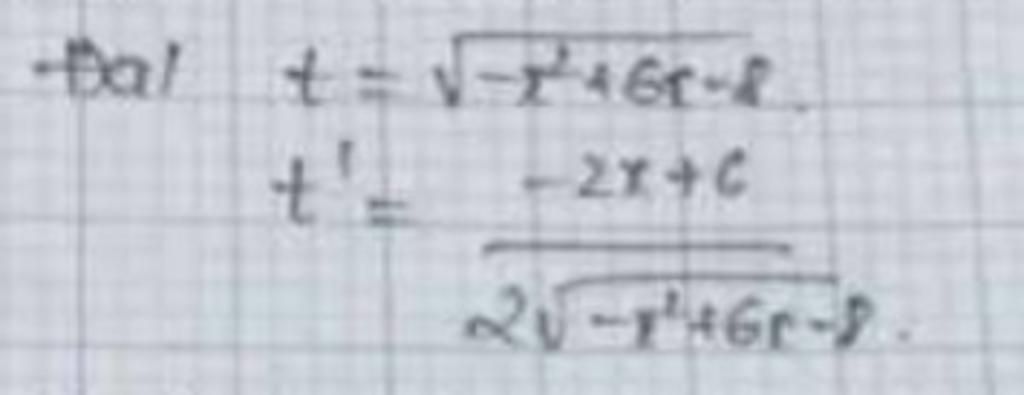 Đặt t = √(-x²+6x-8).
t' = (-2x+6) / (2√(-x²+6x-8)).